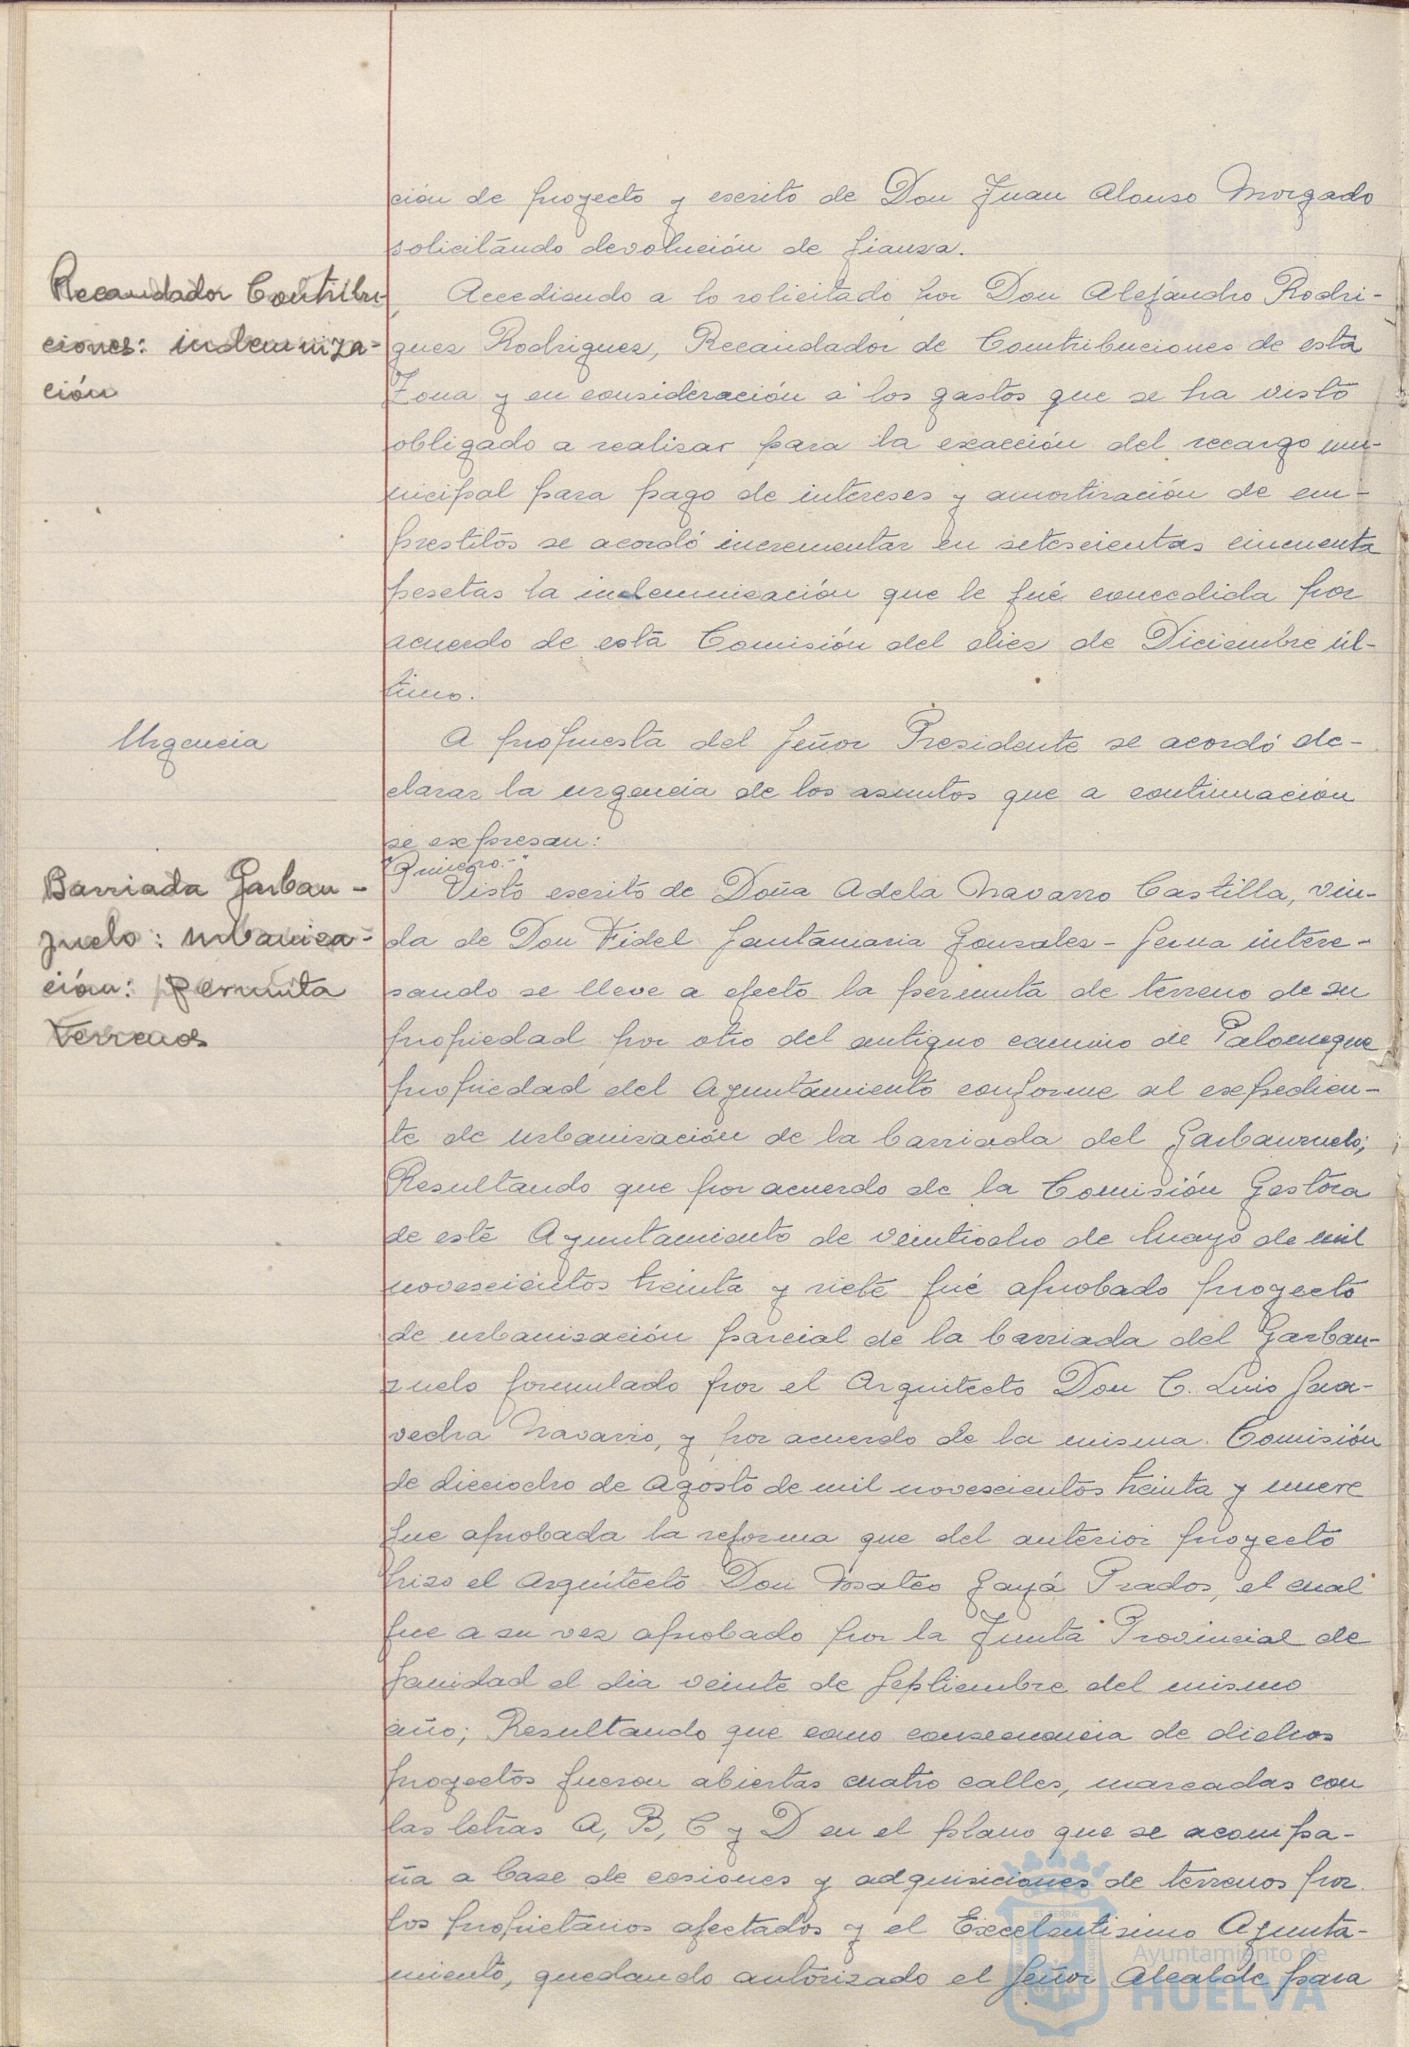 ción de proyecto y escrito de Don Juan Alonso Morgado
solicitando devolución de fianza.
Recaudador Contribu-
ciones: indemniza-
ción
Accediendo a lo solicitado por Don Alejandro Rodri-
guez Rodriguez, Recaudador de Contribuciones de esta
Zona y en consideración a los gastos que se ha visto
obligado a realizar para la exacción del recargo mu-
nicipal para pago de intereses y amortización de em-
prestitos se acordó incrementar en setescientas cincuenta
pesetas la indemnización que le fué concedida por
acuerdo de esta Comisión del diez de Diciembre úl-
timo.
Urgencia
A propuesta del Señor Presidente se acordó de-
clarar la urgencia de los asuntos que a continuación
se expresan:
"Primero.-"
Barriada Garban-
zuelo: urbaniza-
ción: permuta
terrenos
Visto escrito de Doña Adela Navarro Castilla, viu-
da de Don Fidel Santamaria Gonzalez-Serna intere-
sando se lleve a efecto la permuta de terreno de su
propiedad por otro del antiguo camino de Palomeque
propiedad del Ayuntamiento conforme al expedien-
te de urbanización de la barriada del Garbanzuelo;
Resultando que por acuerdo de la Comisión Gestora
de este Ayuntamiento de veintiocho de Mayo de mil
novescientos treinta y siete fué aprobado proyecto
de urbanización parcial de la barriada del Garban-
zuelo formulado por el Arquitecto Don C. Luis Saa-
vedra Navarro, y por acuerdo de la misma Comisión
de dieciocho de Agosto de mil novescientos treinta y nueve
fue aprobada la reforma que del anterior proyecto
hizo el Arquitecto Don Mateo Gayá Prados, el cual
fue a su vez aprobado por la Junta Provincial de
Sanidad el dia veinte de Septiembre del mismo
año; Resultando que como consecuencia de dichos
proyectos fueron abiertas cuatro calles, marcadas con
las letras A, B, C y D en el plano que se acompa-
ña a base de cesiones y adquisiciones de terrenos por
los propietarios afectados y el Excelentisimo Ayunta-
miento, quedando autorizado el Señor Alcalde para
Ayuntamiento de
HUELVA